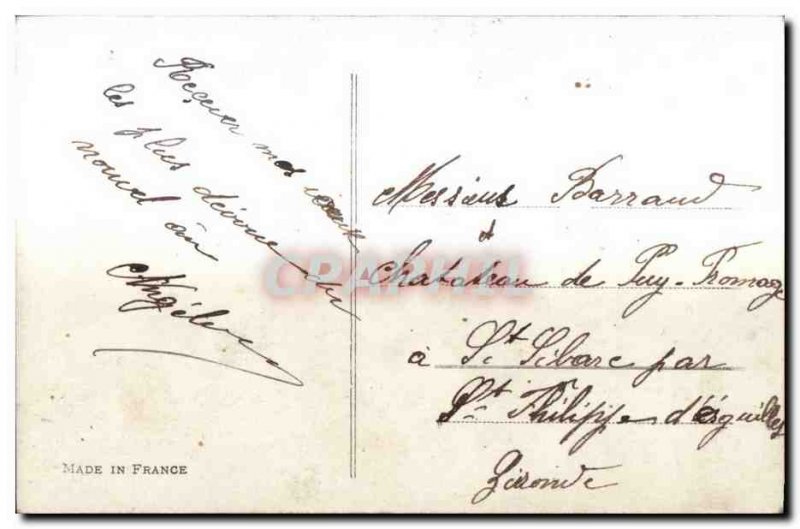 Recever mes vœux
les plus dévoués du
nouvel ân
Angelou
Messieur Barraud
d
Chatateau de Puy-Fromage
à St Cibarc par
St Philippe d'ésguilles
Gironde
CPAPHIL
MADE IN FRANCE